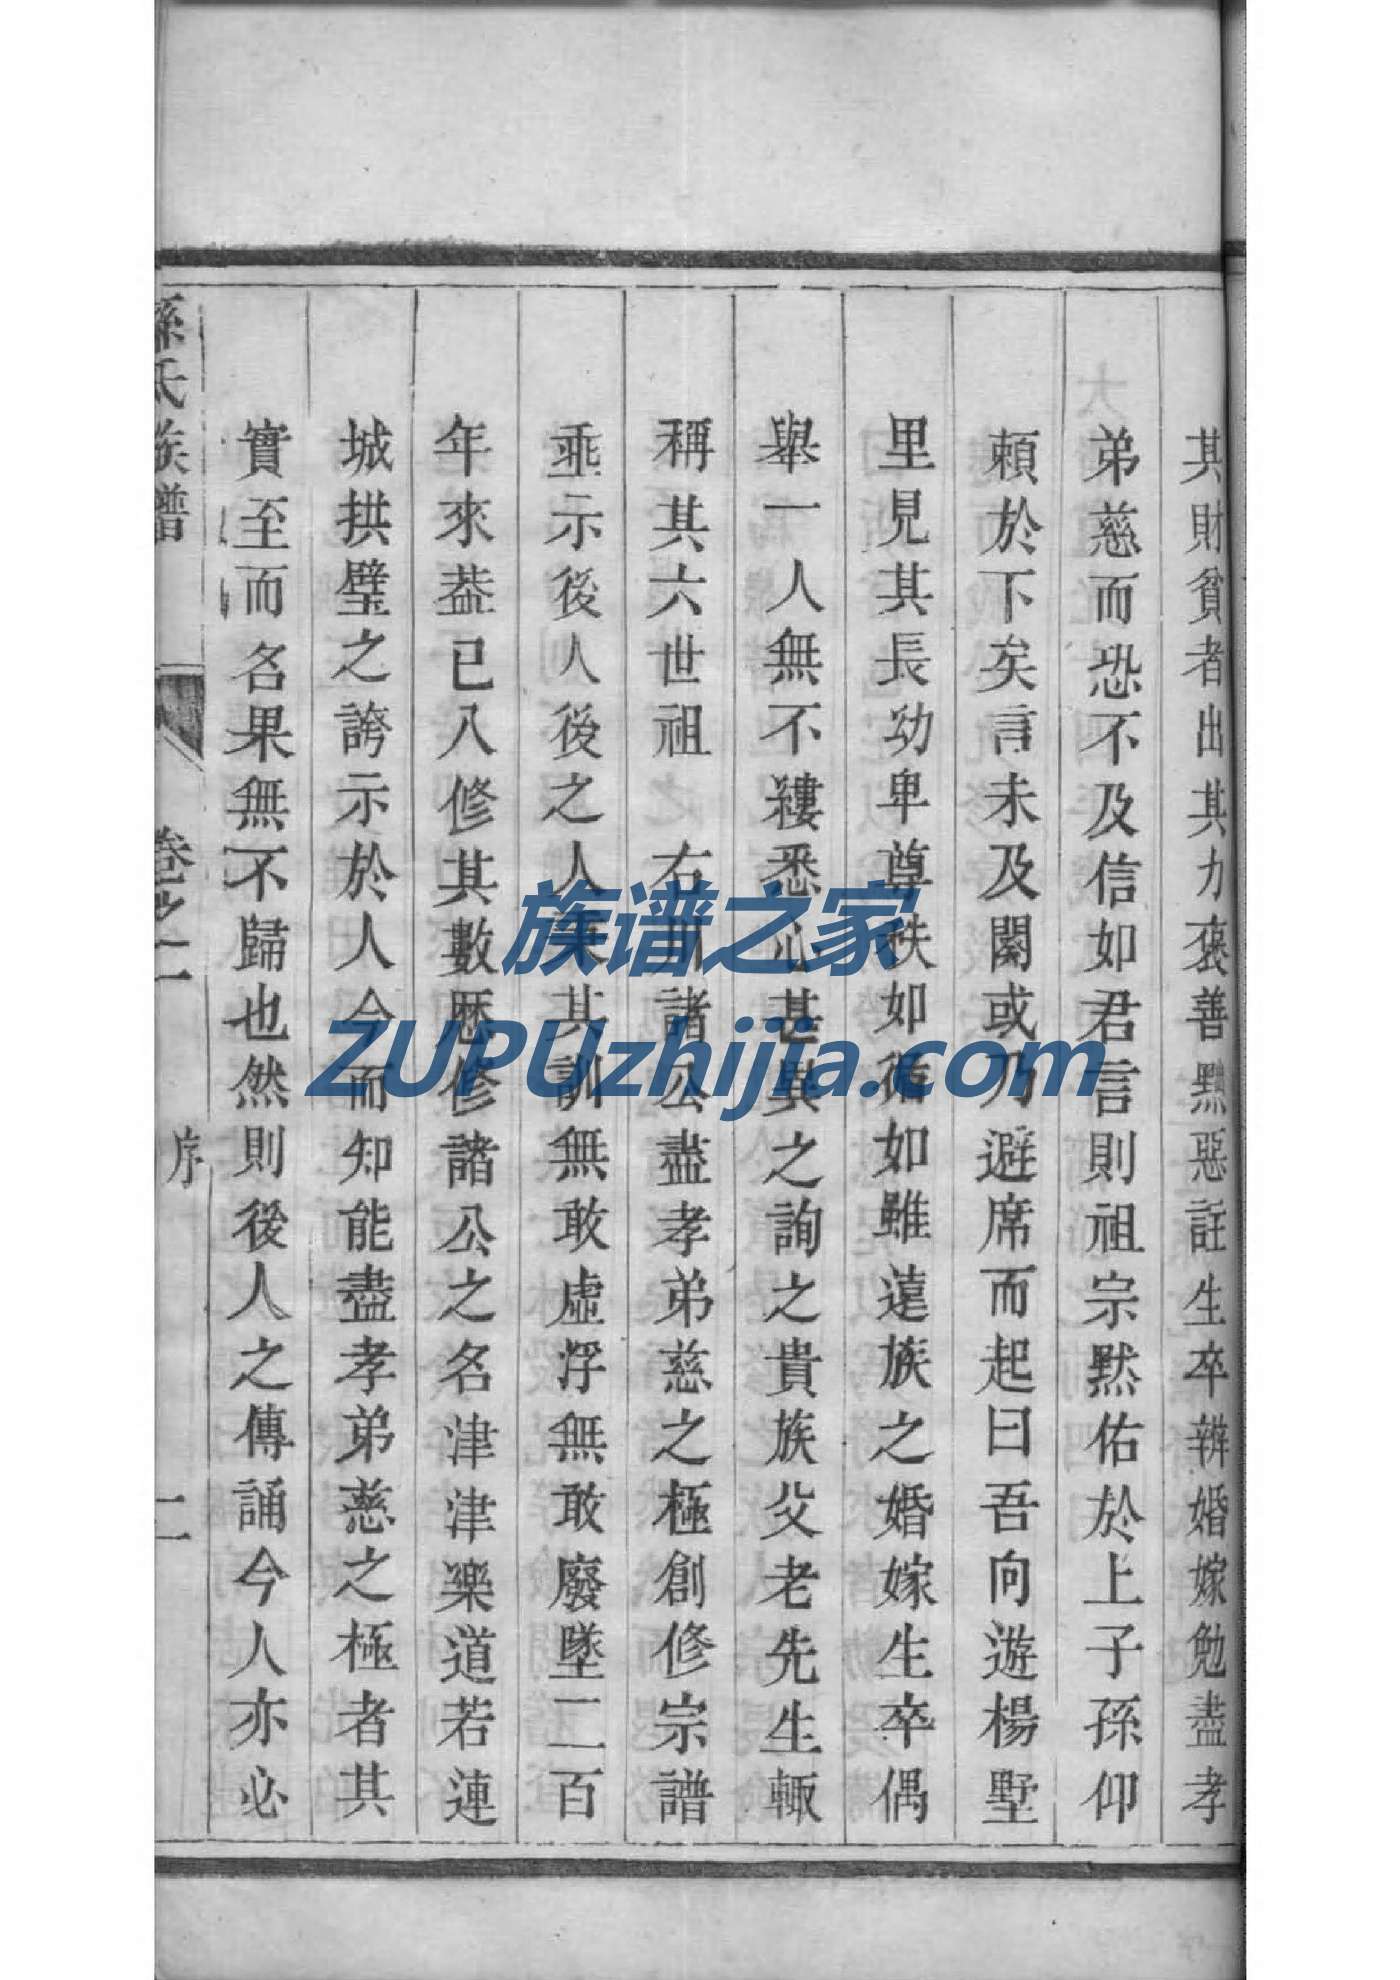 其財貧者出其力褒善黜惡註生卒辨婚嫁勉盡孝
弟慈而恐不及信如君言則祖宗黙佑於上子孫仰
頼於下矣言未及闋或乃避席而起曰吾向遊楊墅
里見其長幼卑尊秩如循如雖遠族之婚嫁生卒偶
舉一人無不縷悉心甚異之詢之貴族父老先生輙
稱其六世祖 右川諸公盡孝弟慈之極創修宗譜
垂示後人後之人秉其訓無敢虛浮無敢廢墜二百
年來葢已八修其數厯修諸公之名津津樂道若連
城拱璧之誇示於人今而知能盡孝弟慈之極者其
實至而名果無不歸也然則後人之傳誦今人亦必
孫氏族譜 卷之一 序 二
族谱之家
ZUPUzhijia.com